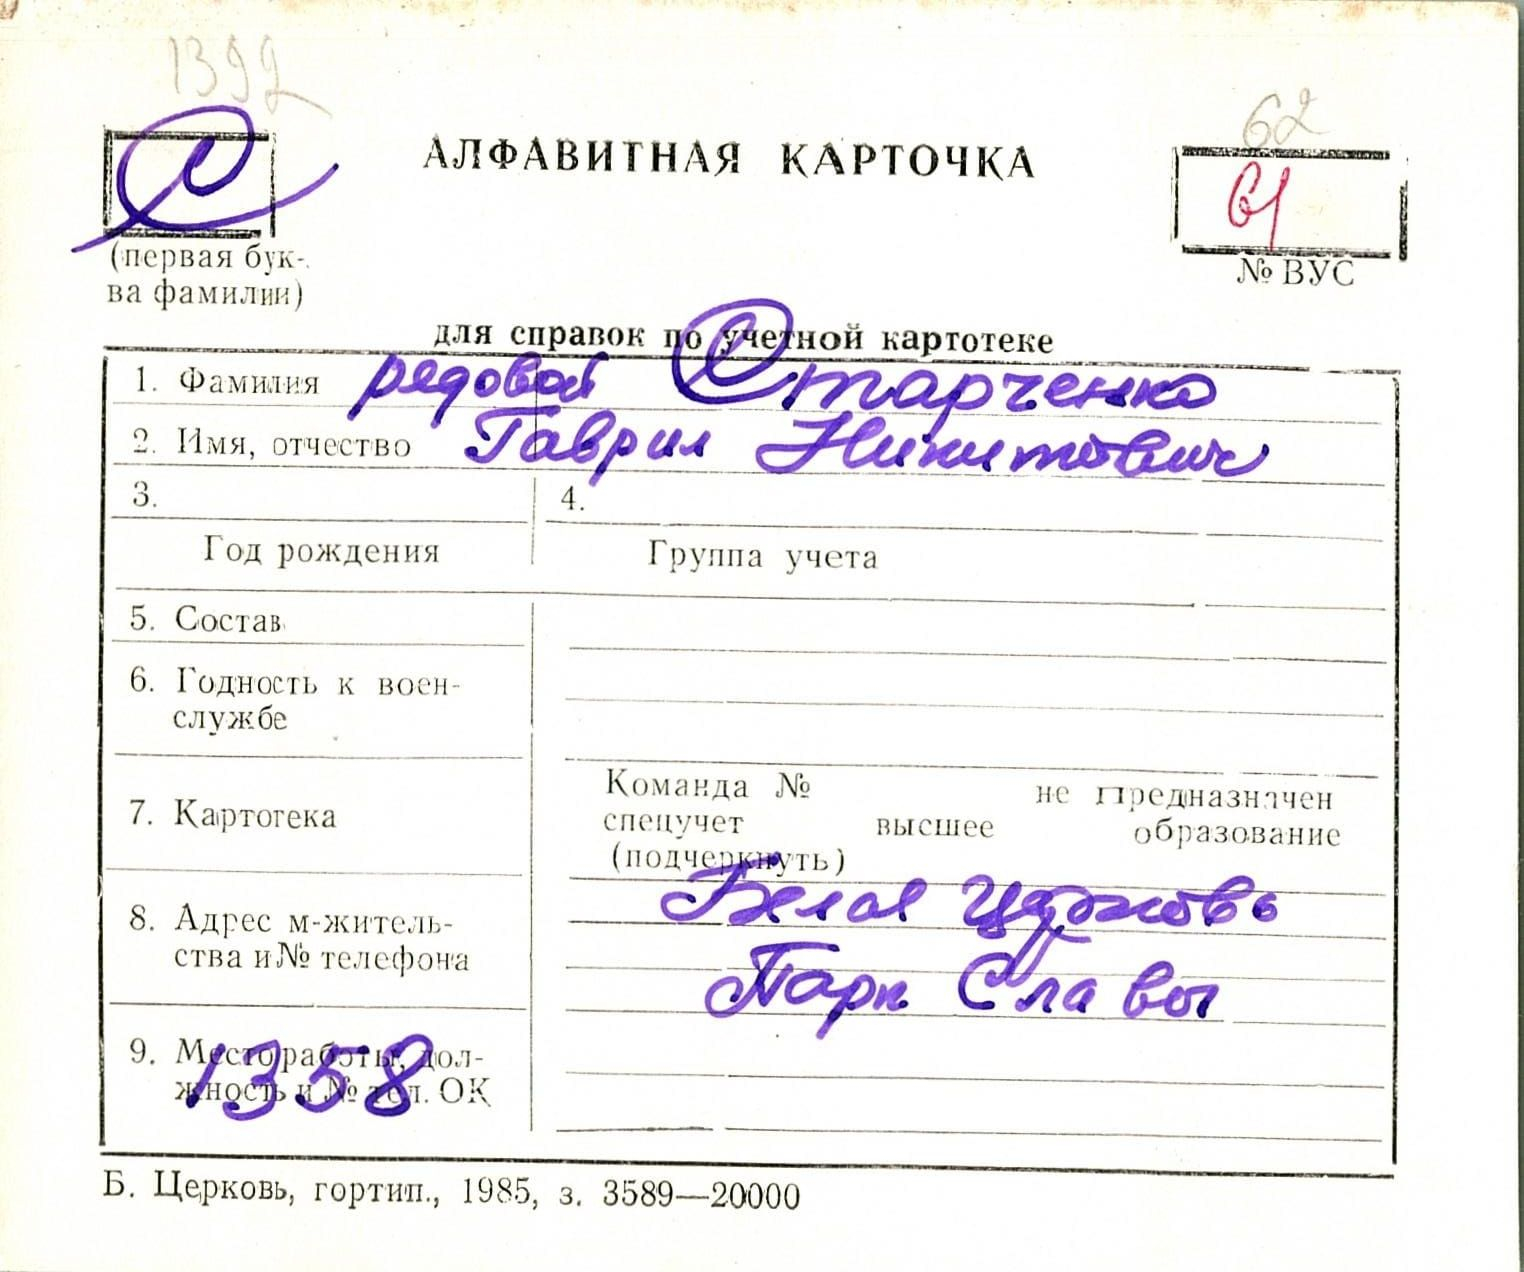 1392
62
С
АЛФАВИТНАЯ КАРТОЧКА
61
(первая бук-
ва фамилии)
№ ВУС
для справок по учетной картотеке
1. Фамилия рядовой Старченко
2. Имя, отчество Гаврил Никитович
3.
4.
Год рождения
Группа учета
5. Состав
6. Годность к воен-
службе
7. Картотека
Команда № не предназначен
спецучет высшее образование
(подчеркнуть)
8. Адрес м-житель-
ства и № телефона
Белая Церковь
Парк Славы
9. Место работы, дол-
жность и № тел. ОК
1358
Б. Церковь, гортип., 1985, з. 3589—20000